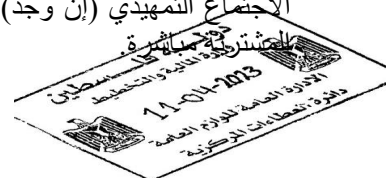 الاجتماع التمهيدي (إن وجد)
المشترية مباشرة.
دولة فلسطين
وزارة المالية والتخطيط
11-04-2023
الإدارة العامة للوازم العامة
دائرة العطاءات المركزية